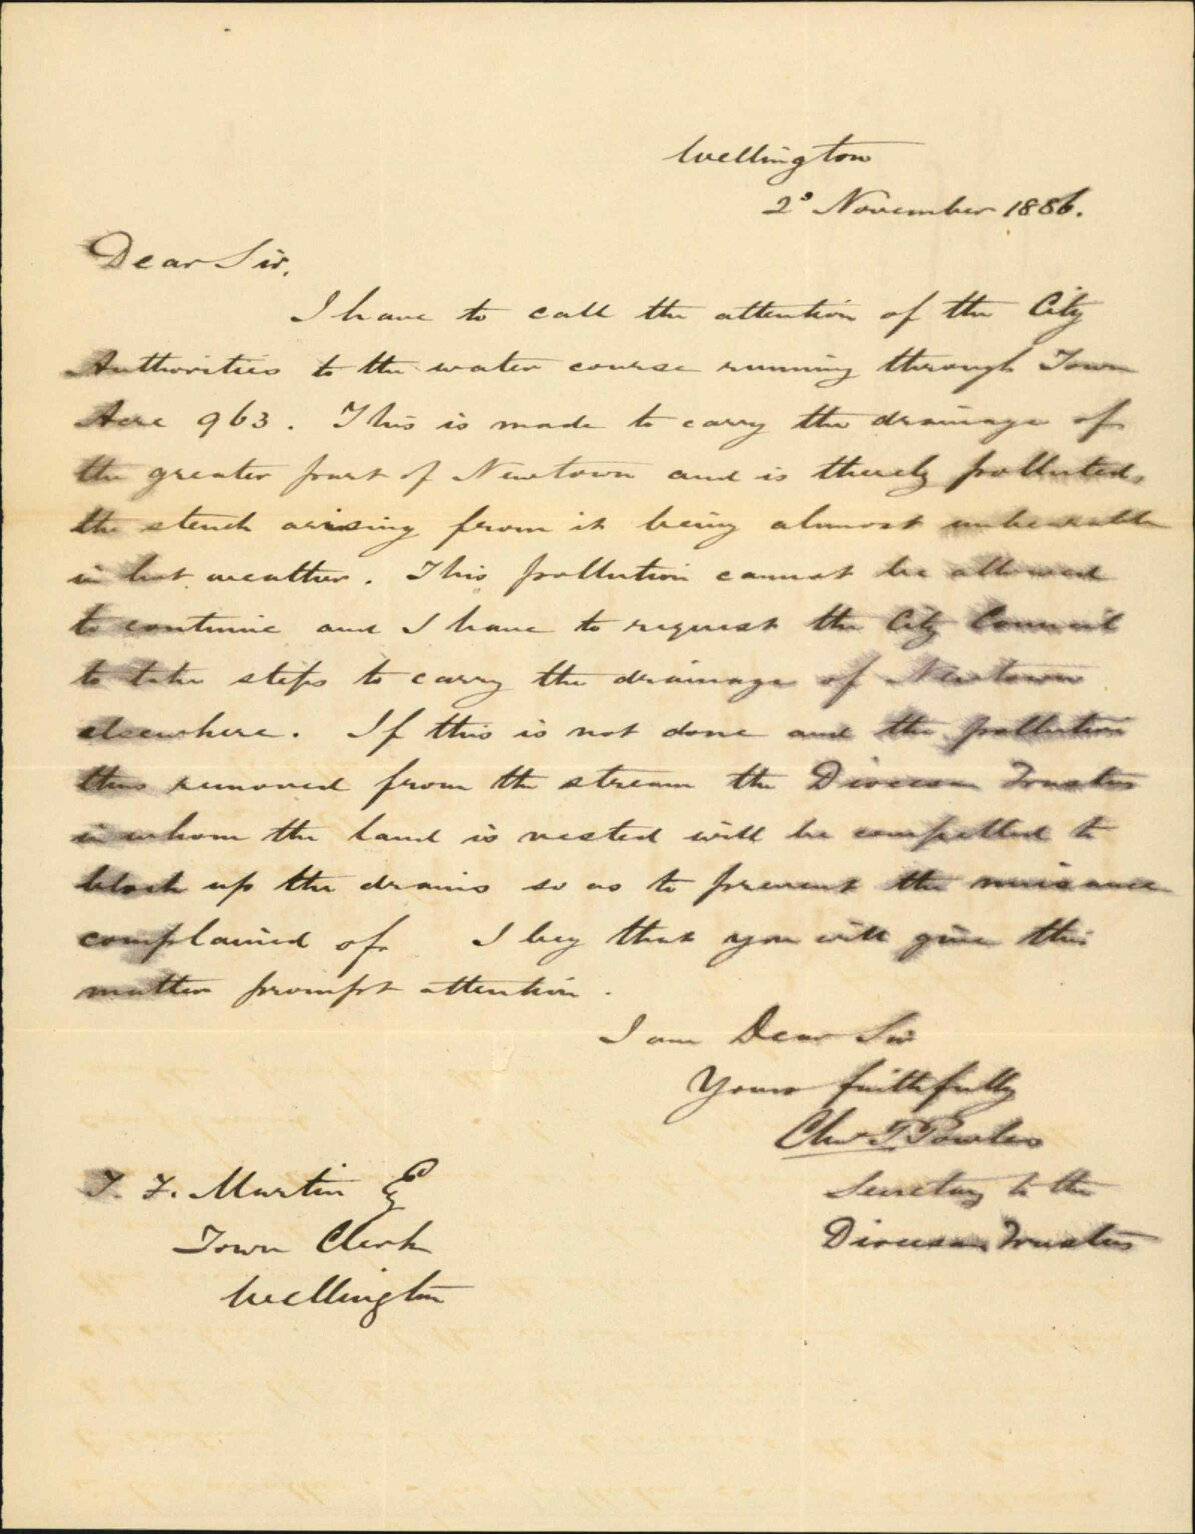 Wellington
2d November 1886.
Dear Sir,
I have to call the attention of the City
Authorities to the water course running through Town
Acre 963. This is made to carry the drainage of
the greater part of Newtown and is thereby polluted,
the stench arising from it being almost unbearable
in hot weather. This pollution cannot be allowed
to continue and I have to request the City Council
to take steps to carry the drainage of Newtown
elsewhere. If this is not done and the pollution
thus removed from the stream the Diocesan Trustees
in whom the land is vested will be compelled to
block up the drains so as to prevent the nuisance
complained of. I beg that you will give this
matter prompt attention.
I am Dear Sir
Yours faithfully
Chas P. Powles
Secretary to the
Diocesan Trustees
F. F. Martin Esq
Town Clerk
Wellington